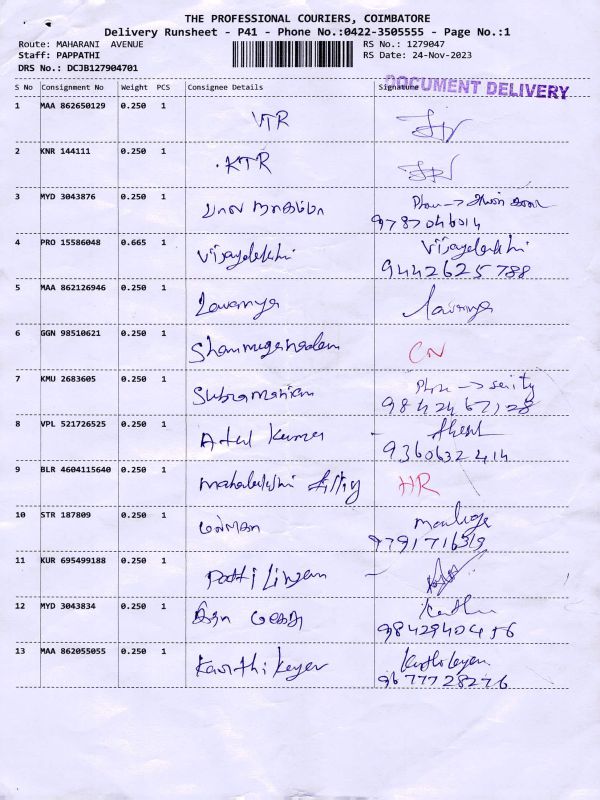 THE PROFESSIONAL COURIERS, COIMBATORE
Delivery Runsheet - P41 - Phone No.:0422-3505555 - Page No.:1
Route: MAHARANI AVENUE RS No.: 1279047
Staff: PAPPATHI RS Date: 24-Nov-2023
DRS No.: DCJB127904701
DOCUMENT DELIVERY
S No Consignment No Weight PCS Consignee Details Signature
1 MAA 862650129 0.250 1 VTR
2 KNR 144111 0.250 1 KTR
3 MYD 3043876 0.250 1 பால Phone ->
9787046014
4 PRO 15586048 0.665 1 Vijayalekhi Vijayalekhi
9442625788
5 MAA 862126946 0.250 1 Lavanya Lavanya
6 GGN 98510621 0.250 1 Shanmuganadam CN
7 KMU 2683605 0.250 1 Subramaniam Phone -> serity
9842467128
8 VPL 521726525 0.250 1 Atul Kumar
9360632414
9 BLR 4604115640 0.250 1 Mahalakshi HR
10 STR 187809 0.250 1
9791716319
11 KUR 695499188 0.250 1 Pattilingam
12 MYD 3043834 0.250 1
9842940456
13 MAA 862055055 0.250 1 Karthikeyen
9677728276